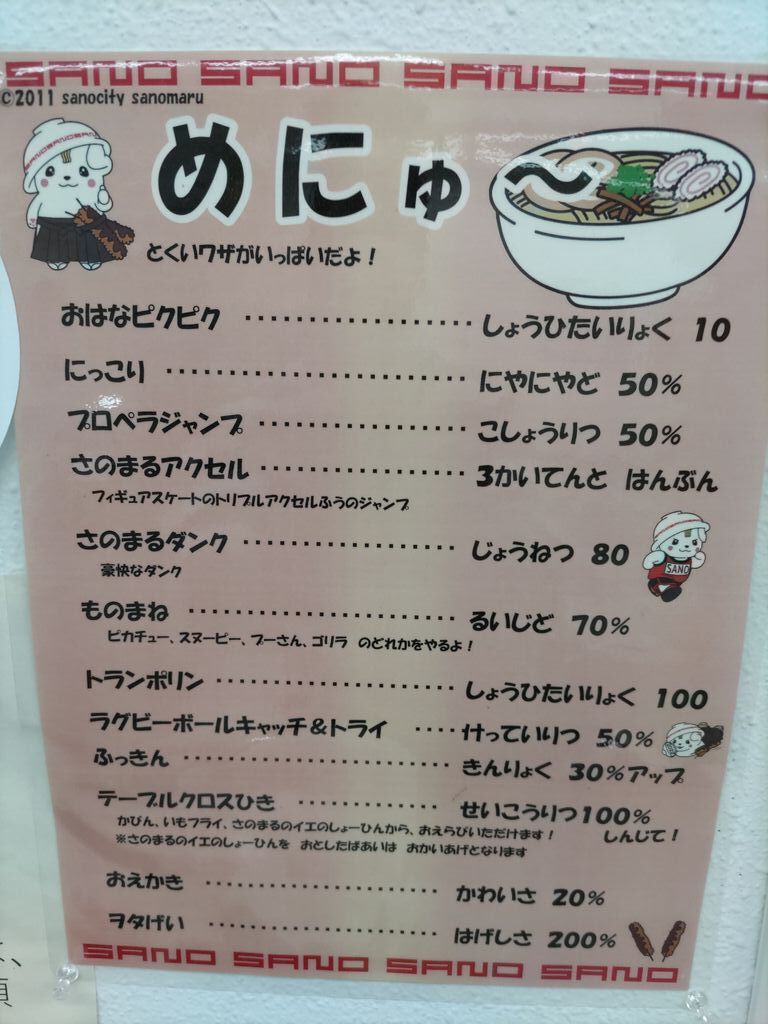 SANO SANO SANO SANO
©2011 sanocity sanomaru
めにゅ〜
とくいワザがいっぱいだよ！
おはなピクピク ・・・・・・・・・・・・・・・・・・・・ しょうひたいりょく 10
にっこり ・・・・・・・・・・・・・・・・・・・・・・・・・・ にやにやど 50%
プロペラジャンプ ・・・・・・・・・・・・・・・・・・ こしょうりつ 50%
さのまるアクセル ・・・・・・・・・・・・・・・・・・ 3かいてんと はんぶん
フィギュアスケートのトリプルアクセルふうのジャンプ
さのまるダンク ・・・・・・・・・・・・・・・・・・・・ じょうねつ 80
豪快なダンク
SANO
ものまね ・・・・・・・・・・・・・・・・・・・・・・・・ るいじど 70%
ピカチュー、スヌーピー、プーさん、ゴリラ のどれかをやるよ！
トランポリン ・・・・・・・・・・・・・・・・・・・・・・ しょうひたいりょく 100
ラグビーボールキャッチ＆トライ ・・・・ けっていりつ 50%
ふっきん ・・・・・・・・・・・・・・・・・・・・・・・・ きんりょく 30%アップ
テーブルクロスひき ・・・・・・・・・・・・ せいこうりつ100%
かびん、いもフライ、さのまるのイエのしょーひんから、おえらびいただけます！ しんじて！
※さのまるのイエのしょーひんを おとしたばあいは おかいあげとなります
おえかき ・・・・・・・・・・・・・・・・・・・・ かわいさ 20%
ヲタげい ・・・・・・・・・・・・・・・・・・・・ はげしさ 200%
SANO SANO SANO SANO